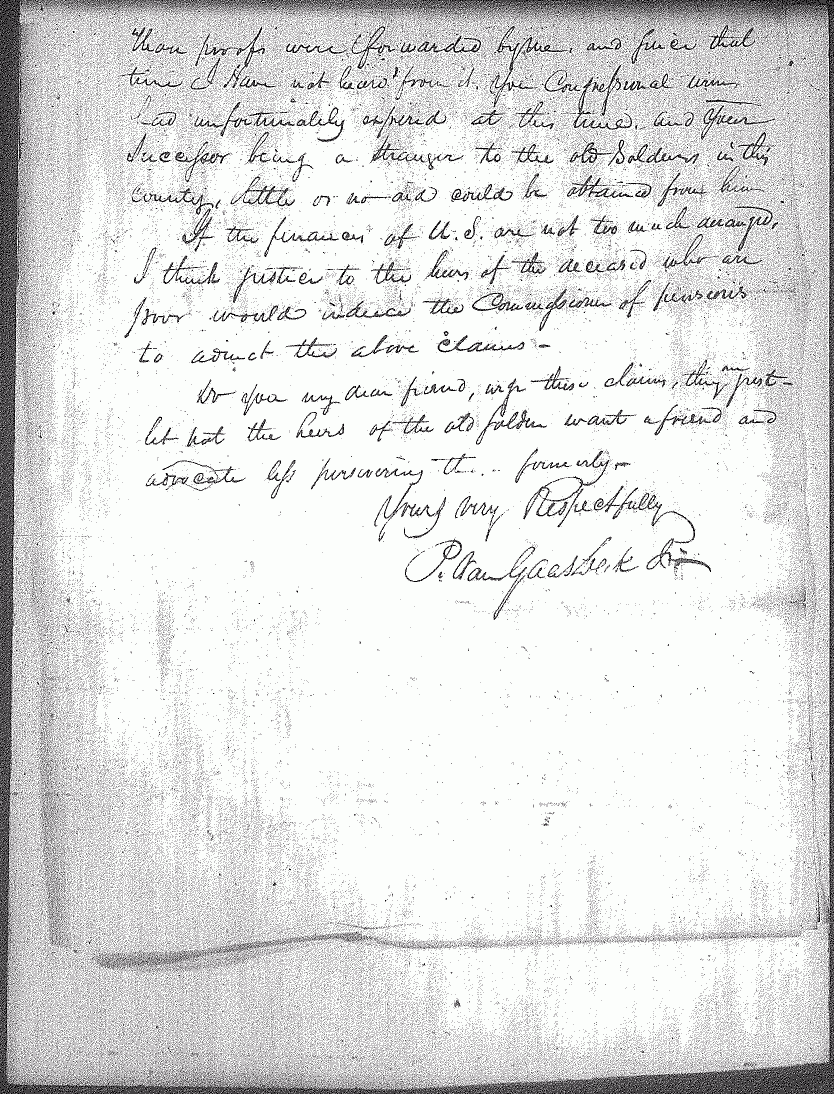 Those proofs were forwarded by me, and since that
time I Have not heard from it. Your Congressional term
had unfortunately expired at this time, and Your
Successor being a stranger to the old Soldiers in this
county, little or no aid could be obtained from him
If the finances of U.S. are not too much deranged,
I think justice to the heirs of the deceased who are
poor would induce the Commissioner of pensions
to admit the above Claims -
Do You my dear friend, urge these claims, they are just -
let not the heirs of the old soldier want a friend and
advocate less persevering th... formerly -
Yours very Respectfully
P. Van Gaasbeek Jr